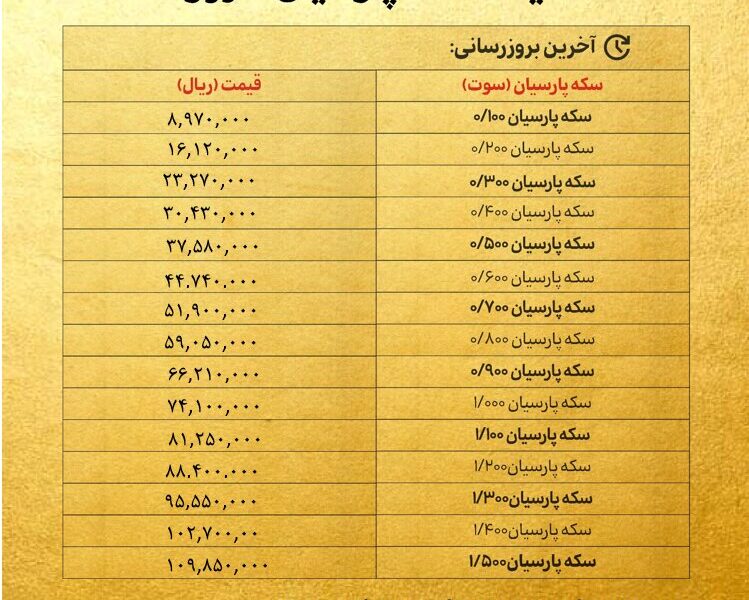 آخرین بروزرسانی:
سکه پارسیان (سوت) قیمت (ریال)
سکه پارسیان ۰/۱۰۰ ۸,۹۷۰,۰۰۰
سکه پارسیان ۰/۲۰۰ ۱۶,۱۲۰,۰۰۰
سکه پارسیان ۰/۳۰۰ ۲۳,۲۷۰,۰۰۰
سکه پارسیان ۰/۴۰۰ ۳۰,۴۳۰,۰۰۰
سکه پارسیان ۰/۵۰۰ ۳۷,۵۸۰,۰۰۰
سکه پارسیان ۰/۶۰۰ ۴۴.۷۴۰.۰۰۰
سکه پارسیان ۰/۷۰۰ ۵۱,۹۰۰,۰۰۰
سکه پارسیان ۰/۸۰۰ ۵۹,۰۵۰,۰۰۰
سکه پارسیان ۰/۹۰۰ ۶۶,۲۱۰,۰۰۰
سکه پارسیان ۱/۰۰۰ ۷۴,۱۰۰,۰۰۰
سکه پارسیان ۱/۱۰۰ ۸۱,۲۵۰,۰۰۰
سکه پارسیان۱/۲۰۰ ۸۸.۴۰۰.۰۰۰
سکه پارسیان۱/۳۰۰ ۹۵,۵۵۰,۰۰۰
سکه پارسیان۱/۴۰۰ ۱۰۲,۷۰۰,۰۰
سکه پارسیان۱/۵۰۰ ۱۰۹,۸۵۰,۰۰۰